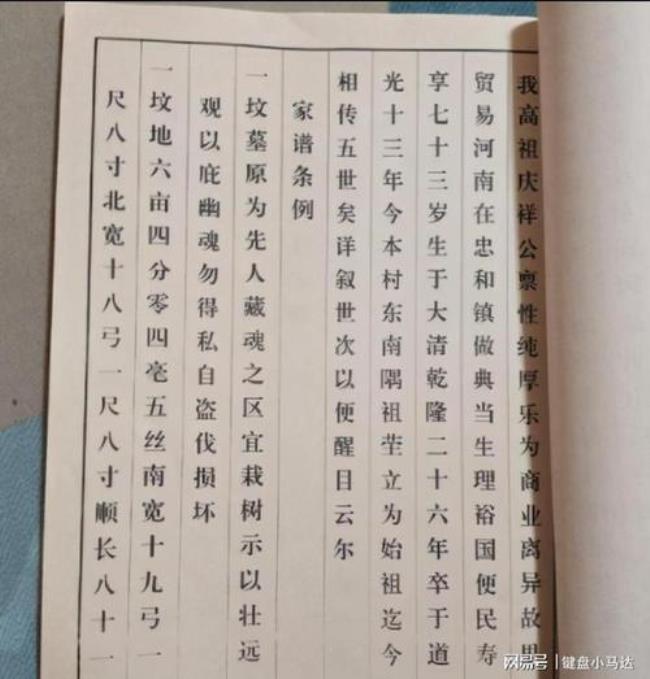 我高祖庆祥公禀性纯厚乐为商业离异故里
贸易河南在忠和镇做典当生理裕国便民寿
享七十三岁生于大清乾隆二十六年卒于道
光十三年今本村东南隅祖茔立为始祖迄今
相传五世矣详叙世次以便醒目云尔
家谱条例
一坟墓原为先人藏魂之区宜栽树示以壮远
观以庇幽魂勿得私自盗伐损坏
一坟地六亩四分零四毫五丝南宽十九弓一
尺八寸北宽十八弓一尺八寸顺长八十一
网易号 | 键盘小马达